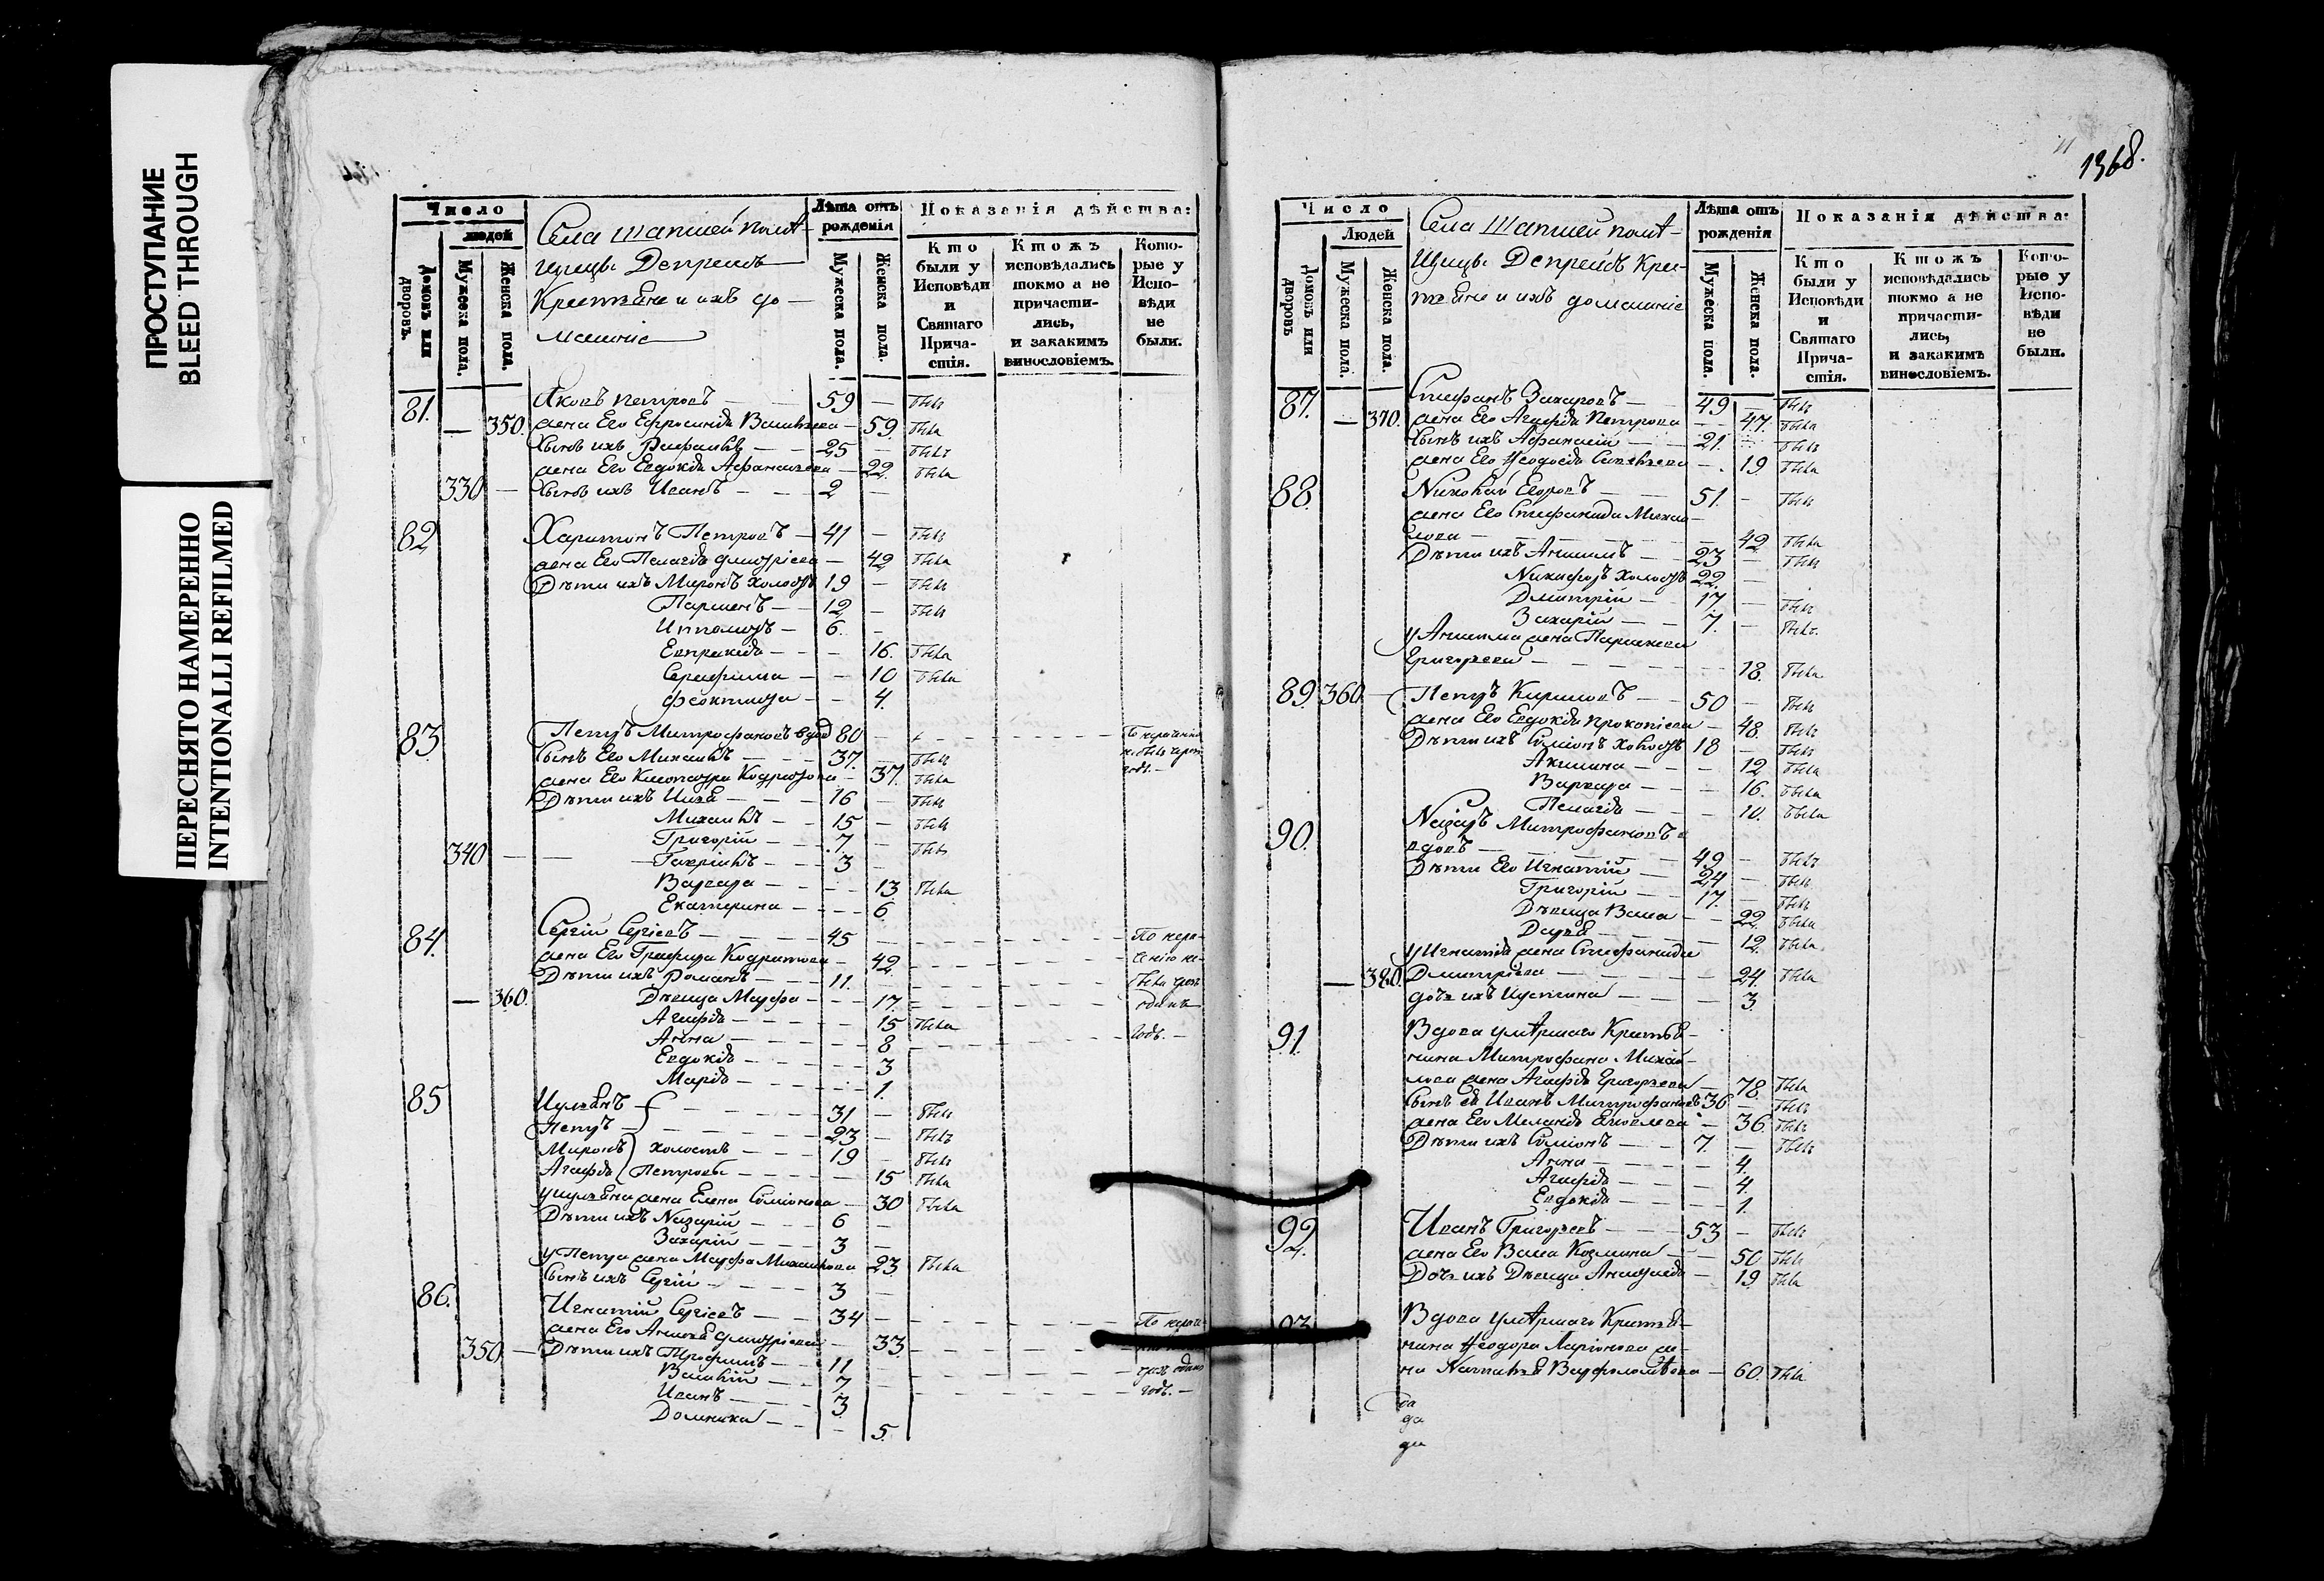 ПРОСТУПАНИЕ
BLEED THROUGH
ПЕРЕСНЯТО НАМЕРЕННО
INTENTIONALLI REFILMED
Число
людей
Домовъ или дворовъ.
Мужеска пола.
Женска пола.
Села Шапшей помѣ-
щицы Депрейсъ
Крестьяне и ихъ до-
машніе
Лѣта отъ рожденія
Мужеска пола.
Женска пола.
Показанія дѣйства:
Кто были у Исповѣди и Святаго Причастія.
Ктожъ исповѣдались токмо а не причастились, и закакимъ винословіемъ.
Которые у Исповѣди не были.
81. Яковъ Петровъ — 59 — былъ
— 350. жена Его Ефросинія Васильева — 59. была
Сынъ ихъ Рафаилъ — 25 — былъ
жена Его Евдокія Афанасьева — 22. была
330 — Сынъ ихъ Иванъ — 2 —
82 Харитонъ Петровъ — 41 — былъ
жена Его Пелагія Дмитріева — 42 была
Дѣти ихъ Миронъ холостъ 19 — былъ
Парменъ — 12 — былъ
Ипполитъ — 6. —
Евпраксія — 16. была
Серафима — 10 была
Феоктиста — 4.
83. Петръ Митрофановъ вдов 80 —
Сынъ Его Михаилъ — 37. — былъ
жена Его Кодратова — 37. была
Дѣти ихъ Илья — 16 — былъ
Михаилъ — 15 — былъ
Григорій — 7 — былъ
340 — Гавріилъ — 3
Варвара — 13 была
Екатерина — 6
84. Сергій Сергіевъ — 45 — По нера-
жена Его Гликерія Кодратова — 42 — ченію не
Дѣти ихъ Романъ — 11.
— 360. Дѣвица Марфа — 17.
Агафія — 15 была
Анна — 8 — годъ. —
Евдокія — 3
Марія — 1.
85 Иульянъ — 31 — былъ
Петръ — 23 — былъ
Миронъ холостъ — 19 — былъ
Агафія Петровы — 15 была
у Иульяна жена Елена Симіонова — 30 была
Дѣти ихъ Назарій — 6 —
Захарій — 3 —
у Петра жена Марфа Михаилова 23 была
Сынъ ихъ Сергій — 3 —
86. Игнатій Сергіевъ — 34 — По нера-
жена Его Дмитріева — 33.
350 — Дѣти ихъ Трофимъ — 11
Василій — 7
Иванъ — 3 — годъ. —
Домника — 5.
1368.
Число
Людей
Домовъ или дворовъ
Мужеска пола.
Женска пола.
Села Шапшей помѣ-
щицы Депрейсъ Кре-
стьяне и ихъ домашніе
Лѣта отъ рожденія
Мужеска пола.
Женска пола.
Показанія дѣйства:
Кто были у Исповѣди и Святаго Причастія.
Ктожъ исповѣдались токмо а не причастились, и закакимъ винословіемъ.
Которые у Исповѣди не были.
87. Стефанъ Захаровъ — 49 — былъ
— 370. жена Его Агафія Петрова — 47. была
Сынъ ихъ Афанасій — 21. былъ
жена Его Ѳеодосія Савельева — 19 была
88. Николай Егоровъ — 51. — былъ
жена Его Стефанида Михаи-
лова — 42 была
Дѣти ихъ Анисимъ — 23 — былъ
Никифоръ холостъ 22. —
Дмитрій — 17. — былъ
Захарій — 7. — былъ
у Анисима жена Параскева
Григорьева — 18. была
89. 360 — Петръ Кириловъ — 50 — былъ
жена Его Евдокія Прокопіева — 48. былъ
Дѣти ихъ Симіонъ холостъ 18 — былъ
Акилина — 12 была
Варвара — 16. была
Пелагія — 10. была
90. Назаръ Митрофановъ
вдовъ — 49 — былъ
Дѣти Его Игнатій — 24 — былъ
Григорій — 17. — былъ
Дѣвица Васса — 22. была
Дарья — 12. была
у Игнатія жена Стефанида
— 380. Дмитріева — 24. была
дочь ихъ Иустина — 3.
91. Вдова умѣршаго Крестья-
нина Митрофана Михай-
лова жена Агафія Григорьева — 78. была
Сынъ ея Иванъ Митрофановъ 36 — былъ
жена Его Меланія Яковлева — 36. былъ
Дѣти ихъ Симіонъ — 7. — былъ
Анна — 4.
Агафія — 4.
Евдокія — 1.
92. Иванъ Григорьевъ — 53 — былъ
жена Его Васса Козмина — 50 былъ
Дочь ихъ Дѣвица Анастасія — 19 была
93. Вдова умѣршаго Крестья-
нина Ѳеодора Ларіонова же-
на Наталья Варфоломѣева — 60. была
да
да